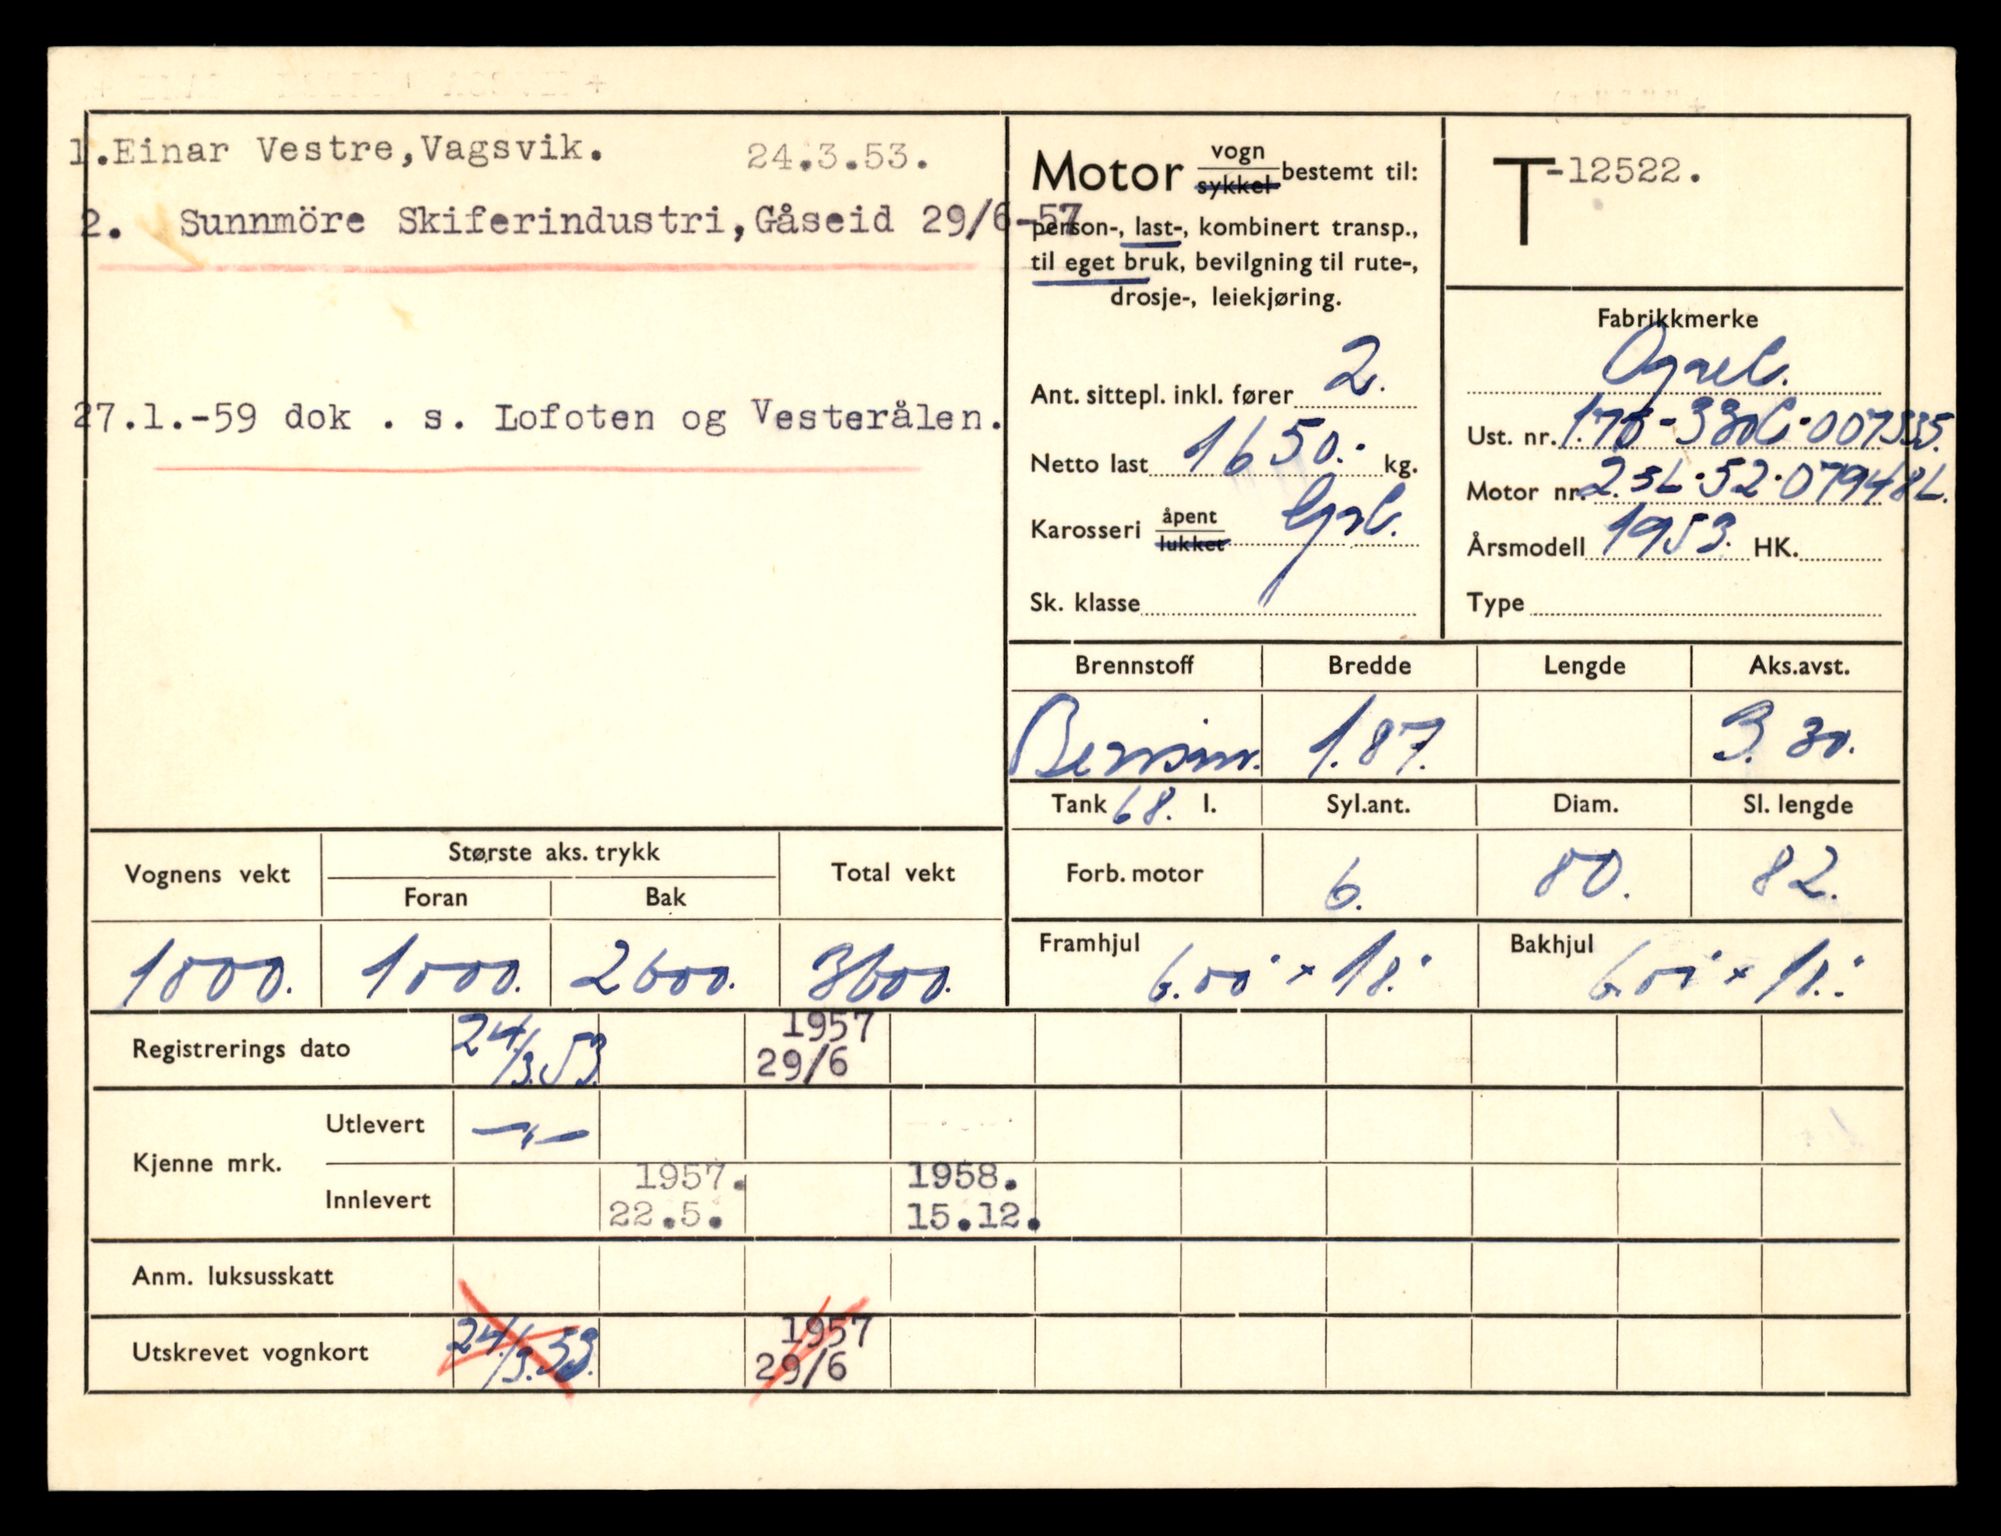 1.Einar Vestre,Vagsvik. 24.3.53.
2. Sunnmöre Skiferindustri,Gåseid 29/6-57
27.1.-59 dok . s. Lofoten og Vesterålen.
Motor vogn sykkel bestemt til:
person-, last-, kombinert transp.,
til eget bruk, bevilgning til rute-,
drosje-, leiekjøring.
Ant. sittepl. inkl. fører 2.
Netto last 1650.- kg.
Karosseri åpent lukket
Sk. klasse
T-12522.
Fabrikkmerke
Opel.
Ust. nr.
Motor nr. 2.5L.52.07948L.
Årsmodell 1953. HK.
Type
Brennstoff Bredde Lengde Aks.avst.
Bensin. 1.87. 3.30.
Tank 68. l. Syl.ant. Diam. Sl. lengde
Forb. motor 6. 80. 82.
Framhjul 6.00" × 18." Bakhjul 6.00" × 18."
Vognens vekt Største aks. trykk Total vekt
Foran Bak
1000. 2600. 3600.
Registrerings dato 24/3.53 1957
29/6
Kjenne mrk. Utlevert —"—
Innlevert 1957. 1958.
22.5. 15.12.
Anm. luksusskatt
Utskrevet vognkort 24/3.53. 1957
29/6